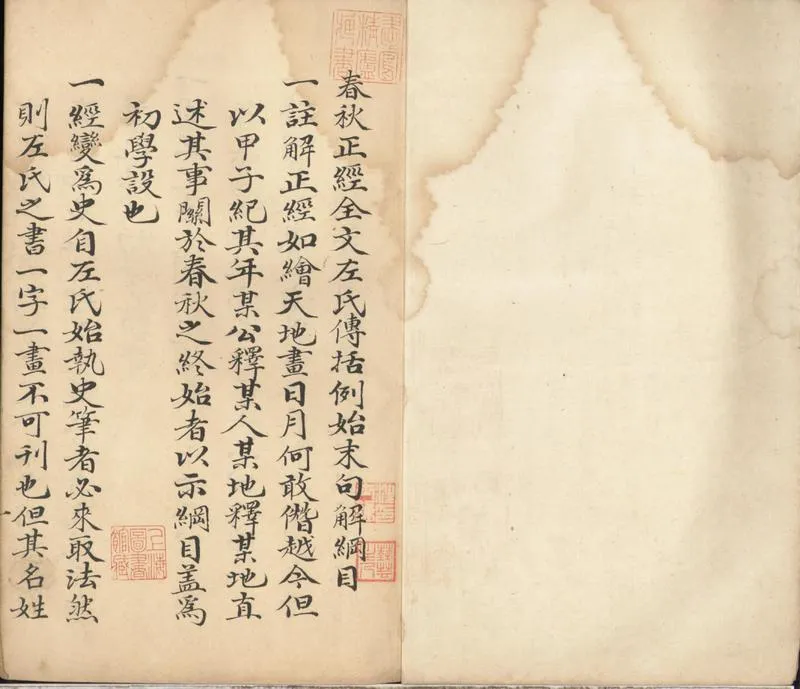 春秋正經全文左氏傳括例始末句解綱目
一註解正經如繪天地畫日月何敢僭越今但
以甲子紀其年某公釋某人某地釋某地直
述其事關於春秋之終始者以示綱目盖爲
初學設也
一經變爲史自左氏始執史筆者必來取法然
則左氏之書一字一畫不可刊也但其名姓
上海圖書館藏